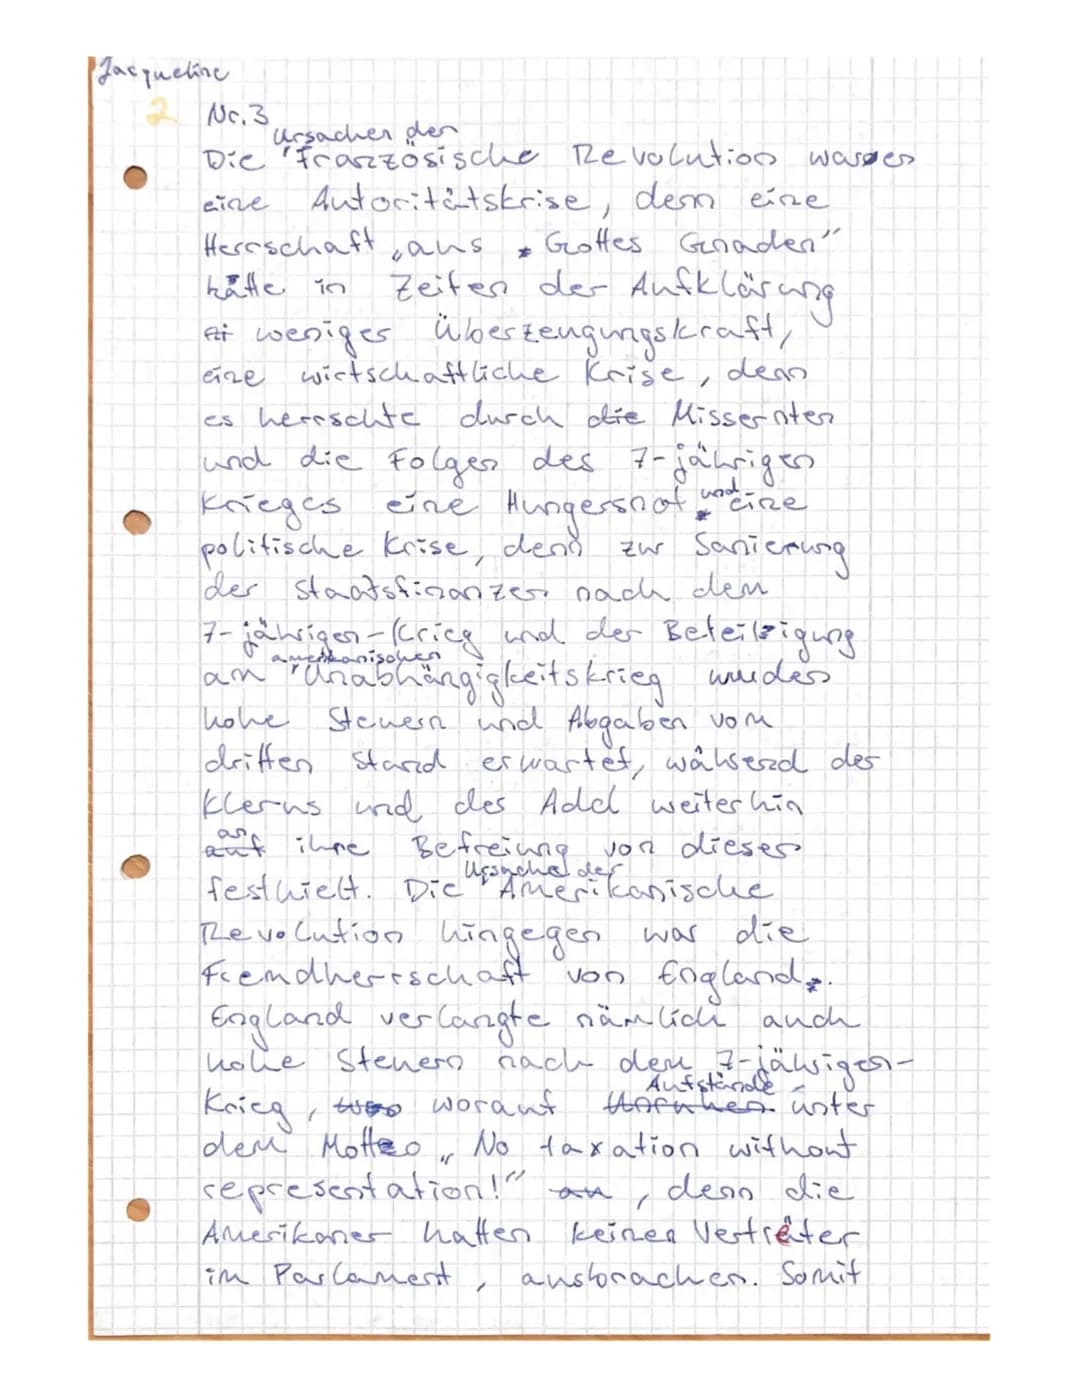 Jacqueline
2 Nr. 3
Ursachen der
Die Französische Revolution waren
eine Autoritätskrise, denn eine
Herrschaft „aus Gottes Gnaden"
hätte in Zeiten der Aufklärung
weniges Überzeugungskraft,
eine wirtschaftliche Krise, denn
es herrschte durch die Missernten
und die Folgen des 7-jährigen
Krieges eine Hungersnot und eine
politische Krise, denn zur Sanierung
der Staatsfinanzen nach dem
7-jährigen-Krieg und der Beteiligung
amerikanischen
am Unabhängigkeitskrieg wurden
hohe Steuern und Abgaben vom
dritten Stand erwartet, während der
Klerus und der Adel weiterhin
an
auf ihre Befreiung von diesen
Ursache der
festhielt. Die Amerikanische
Revolution hingegen war die
Fremdherrschaft von England.
England verlangte nämlich auch
hohe Steuern nach dem 7-jährigen-
Aufstände
Krieg, worauf Unruhen unter
dem Motto „No taxation without
representation!" , denn die
Amerikaner hatten keinen Vertreter
im Parlament, ausbrachen. Somit